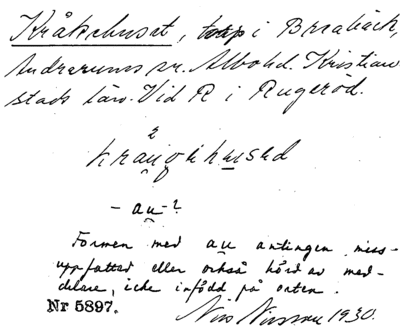 Kråkehuset, torp i Breabäck,
Andrarums sn. Albo hd. Kristian-
stads län. Vid R i Rugeröd.
2
kraugəhusəd
- au -?
Formen med au antingen miss-
uppfattad eller också hörd av med-
delare, icke infödd på orten.
Nr 5897. Nils Nilsson 1930.